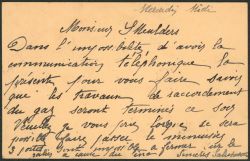 Mercredi Midi
Monsieur Smulders
Dans l'impossibilité d'avoir la
communication téléphonique la
présente pour vous faire savoir
que les travaux de raccordement
du gaz seront terminés ce soir
Veuillez je vous prie
faire passer le
3 sont à fermer sur le
à cause du